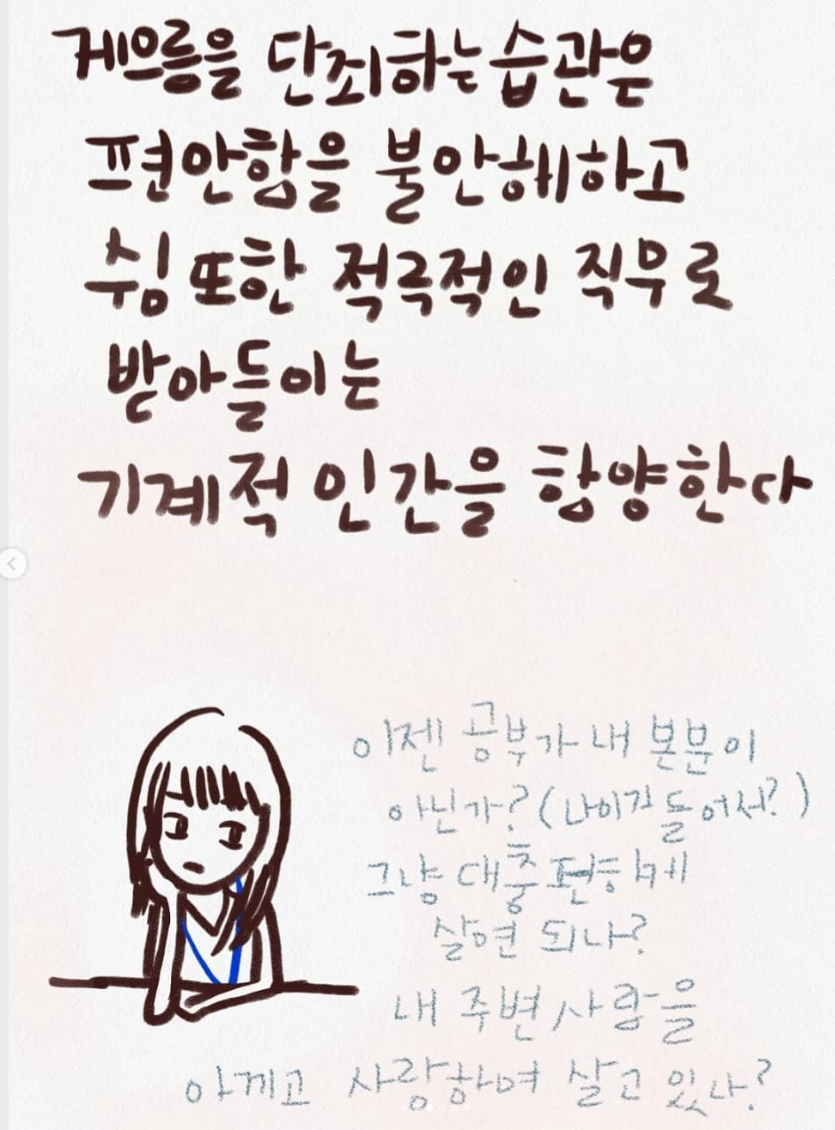 게으름을 단죄하는 습관은
편안함을 불안해하고
쉼 또한 적극적인 직무로
받아들이는
기계적 인간을 함양한다
이젠 공부가 내 본분이
아닌가? (나이가 들어서?)
그냥 대충 편하게
살면 되나?
내 주변 사람을
아끼고 사랑하며 살고 있나?